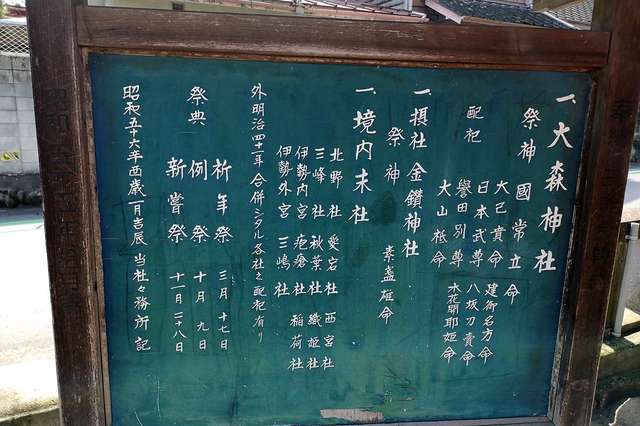 一、大森神社
祭神 國常立命
配祀 大己貴命 建御名方命
日本武尊 八坂刀賣命
譽田別尊 木花開耶姫命
大山祗命
一、摂社 金鑚神社
祭神 素盞雄命
一、境内末社
北野社 愛宕社 西宮社
三峰社 秋葉社 織姫社
伊勢内宮 疱瘡社 稲荷社
伊勢外宮 三嶋社
外明治四十一年合併シタル各社之配祀有り
祭典 祈年祭 三月十七日
例祭 十月九日
新嘗祭 十一月二十八日
昭和五十六辛酉歳一月吉辰 当社々務所記